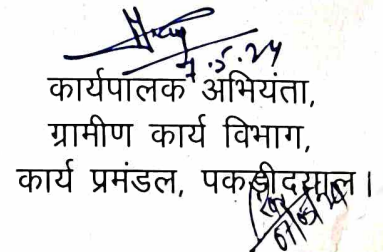 7.5.24
कार्यपालक अभियंता,
ग्रामीण कार्य विभाग,
कार्य प्रमंडल, पकड़ीदयाल।